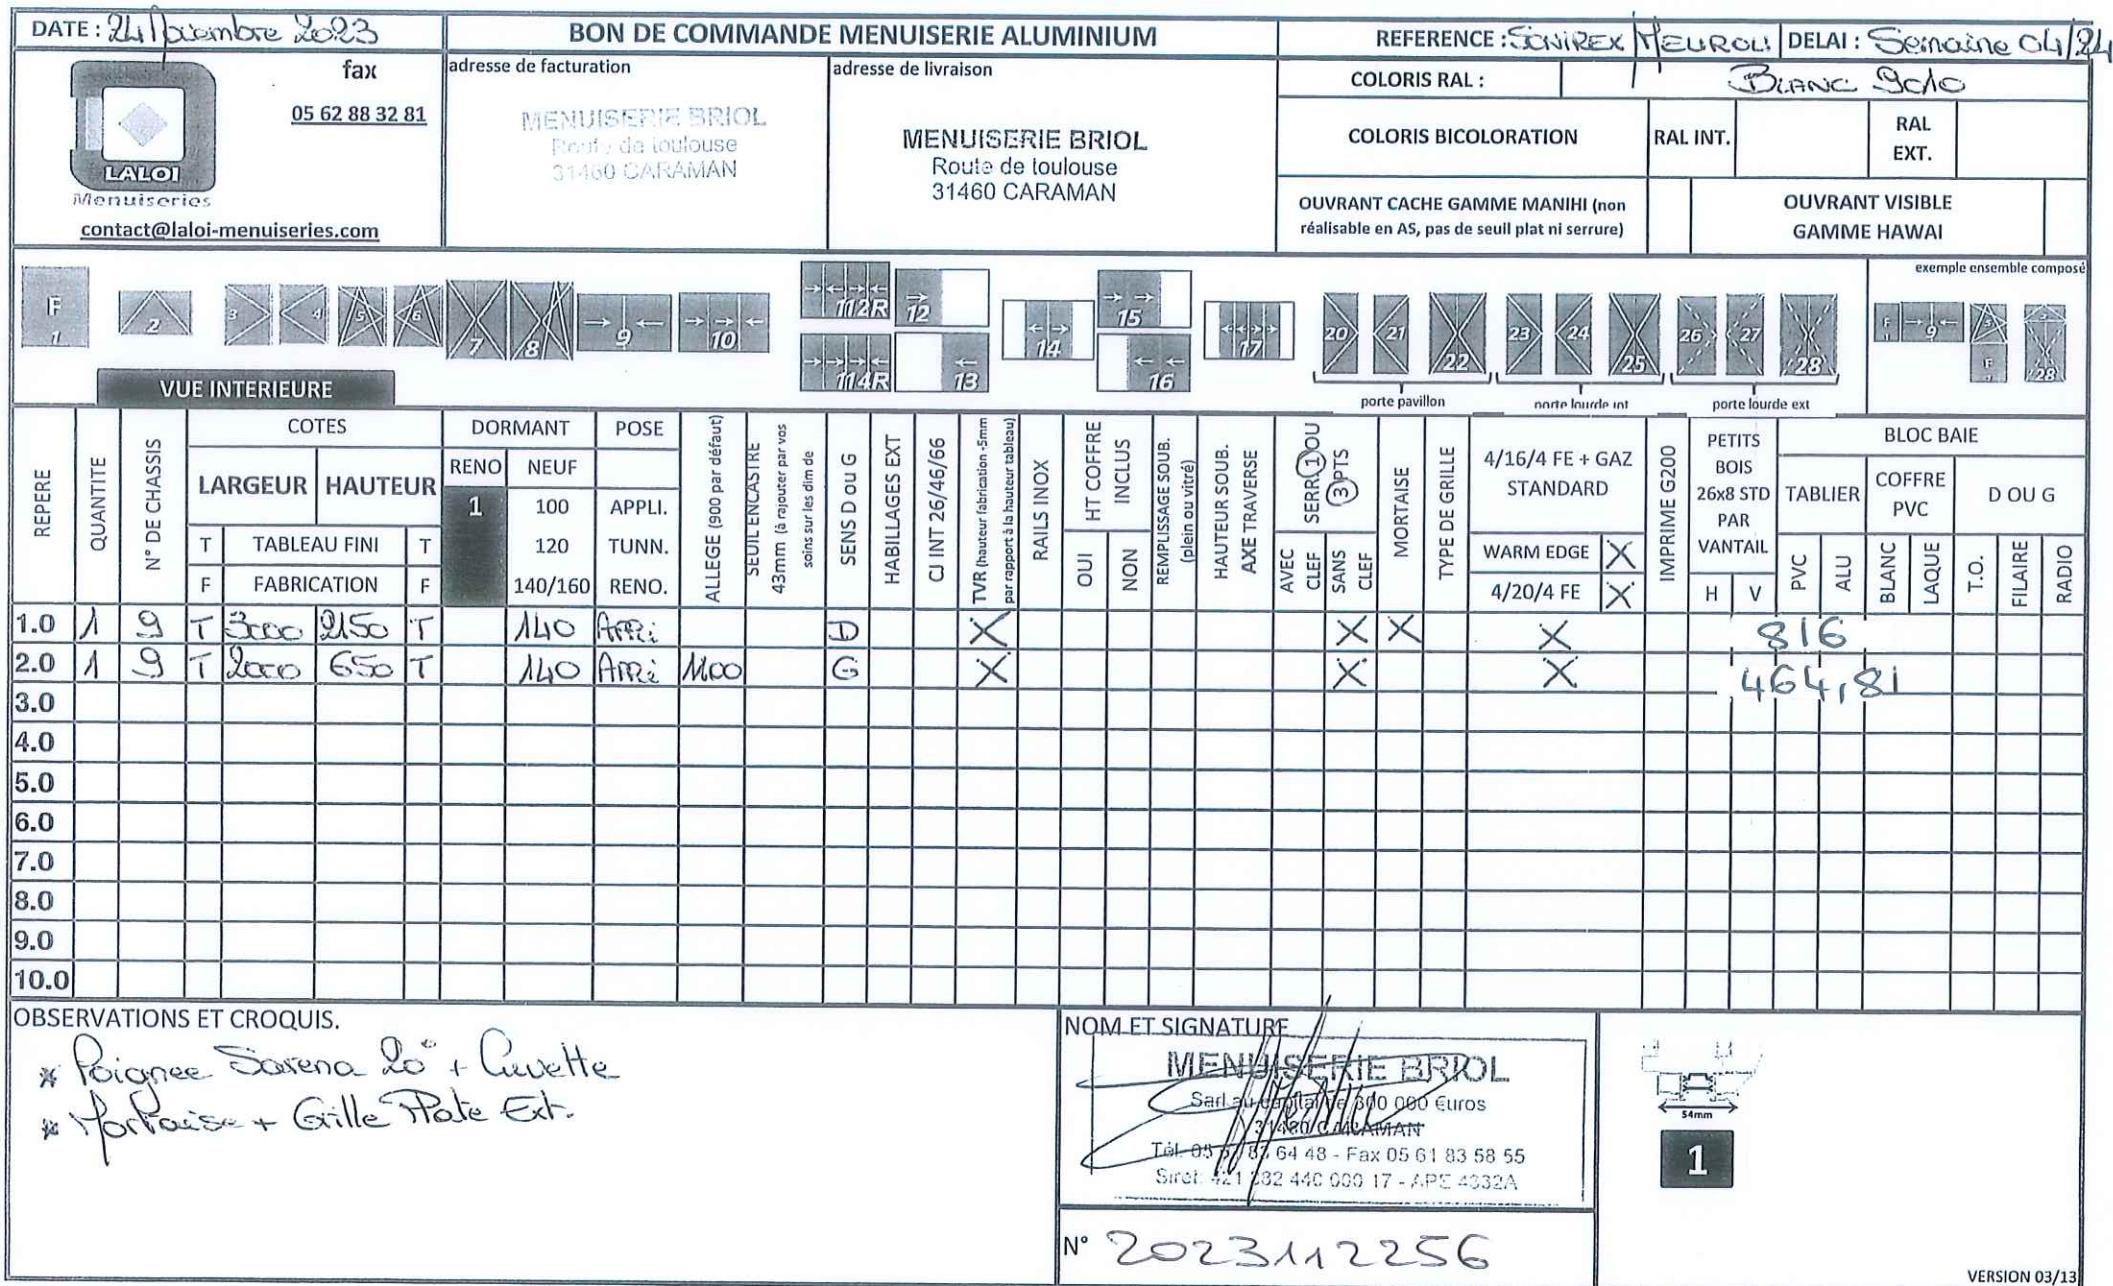 DATE : 24 Novembre 2023
BON DE COMMANDE MENUISERIE ALUMINIUM
REFERENCE : SONIREX / MEUROU
DELAI : Semaine 04/24
LALOI
Menuiseries
fax
05 62 88 32 81
contact@laloi-menuiseries.com
adresse de facturation
MENUISERIE BRIOL
Route de toulouse
31460 CARAMAN
adresse de livraison
MENUISERIE BRIOL
Route de toulouse
31460 CARAMAN
COLORIS RAL : BLANC 9010
COLORIS BICOLORATION
RAL INT.
RAL EXT.
OUVRANT CACHE GAMME MANIHI (non
réalisable en AS, pas de seuil plat ni serrure)
OUVRANT VISIBLE
GAMME HAWAI
F 1 2 3 4 5 6 7 8 9 10 112R 114R 12 13 14 15 16 17 20 21 22 23 24 25 26 27 28
exemple ensemble composé
F 9 5 F 28
VUE INTERIEURE
porte pavillon
porte lourde int
porte lourde ext
REPERE
QUANTITE
N° DE CHASSIS
COTES
LARGEUR HAUTEUR
T TABLEAU FINI T
F FABRICATION F
DORMANT
RENO NEUF
1
100
120
140/160
POSE
APPLI.
TUNN.
RENO.
ALLEGE (900 par défaut)
SEUIL ENCASTRE
43mm (à rajouter par vos
soins sur les dim de
SENS D ou G
HABILLAGES EXT
CJ INT 26/46/66
TVR (hauteur fabrication -5mm
par rapport à la hauteur tableau)
RAILS INOX
HT COFFRE
INCLUS
OUI
NON
REMPLISSAGE SOUB.
(plein ou vitré)
HAUTEUR SOUB.
AXE TRAVERSE
SERR 1 OU
3 PTS
AVEC
CLEF
SANS
CLEF
MORTAISE
TYPE DE GRILLE
4/16/4 FE + GAZ
STANDARD
WARM EDGE X
4/20/4 FE X
IMPRIME G200
PETITS
BOIS
26x8 STD
PAR
VANTAIL
H V
BLOC BAIE
TABLIER
PVC
ALU
COFFRE
PVC
BLANC
LAQUE
D OU G
T.O.
FILAIRE
RADIO
1.0 1 9 T 3000 2150 T 140 APPLI D X X X X 816
2.0 1 9 T 2000 650 T 140 APPLI 1100 G X X X 464,81
3.0
4.0
5.0
6.0
7.0
8.0
9.0
10.0
OBSERVATIONS ET CROQUIS.
* Poignee Sarena 20° + Cuvette
* Mortaise + Grille Plate Ext.
NOM ET SIGNATURE
MENUISERIE BRIOL
Sarl au capital de 300 000 €uros
31460 CARAMAN
83 64 48 - Fax 05 61 83 58 55
Siret: 421 282 440 000 17 - APE 4332A
N° 2023112256
54mm
1
VERSION 03/13